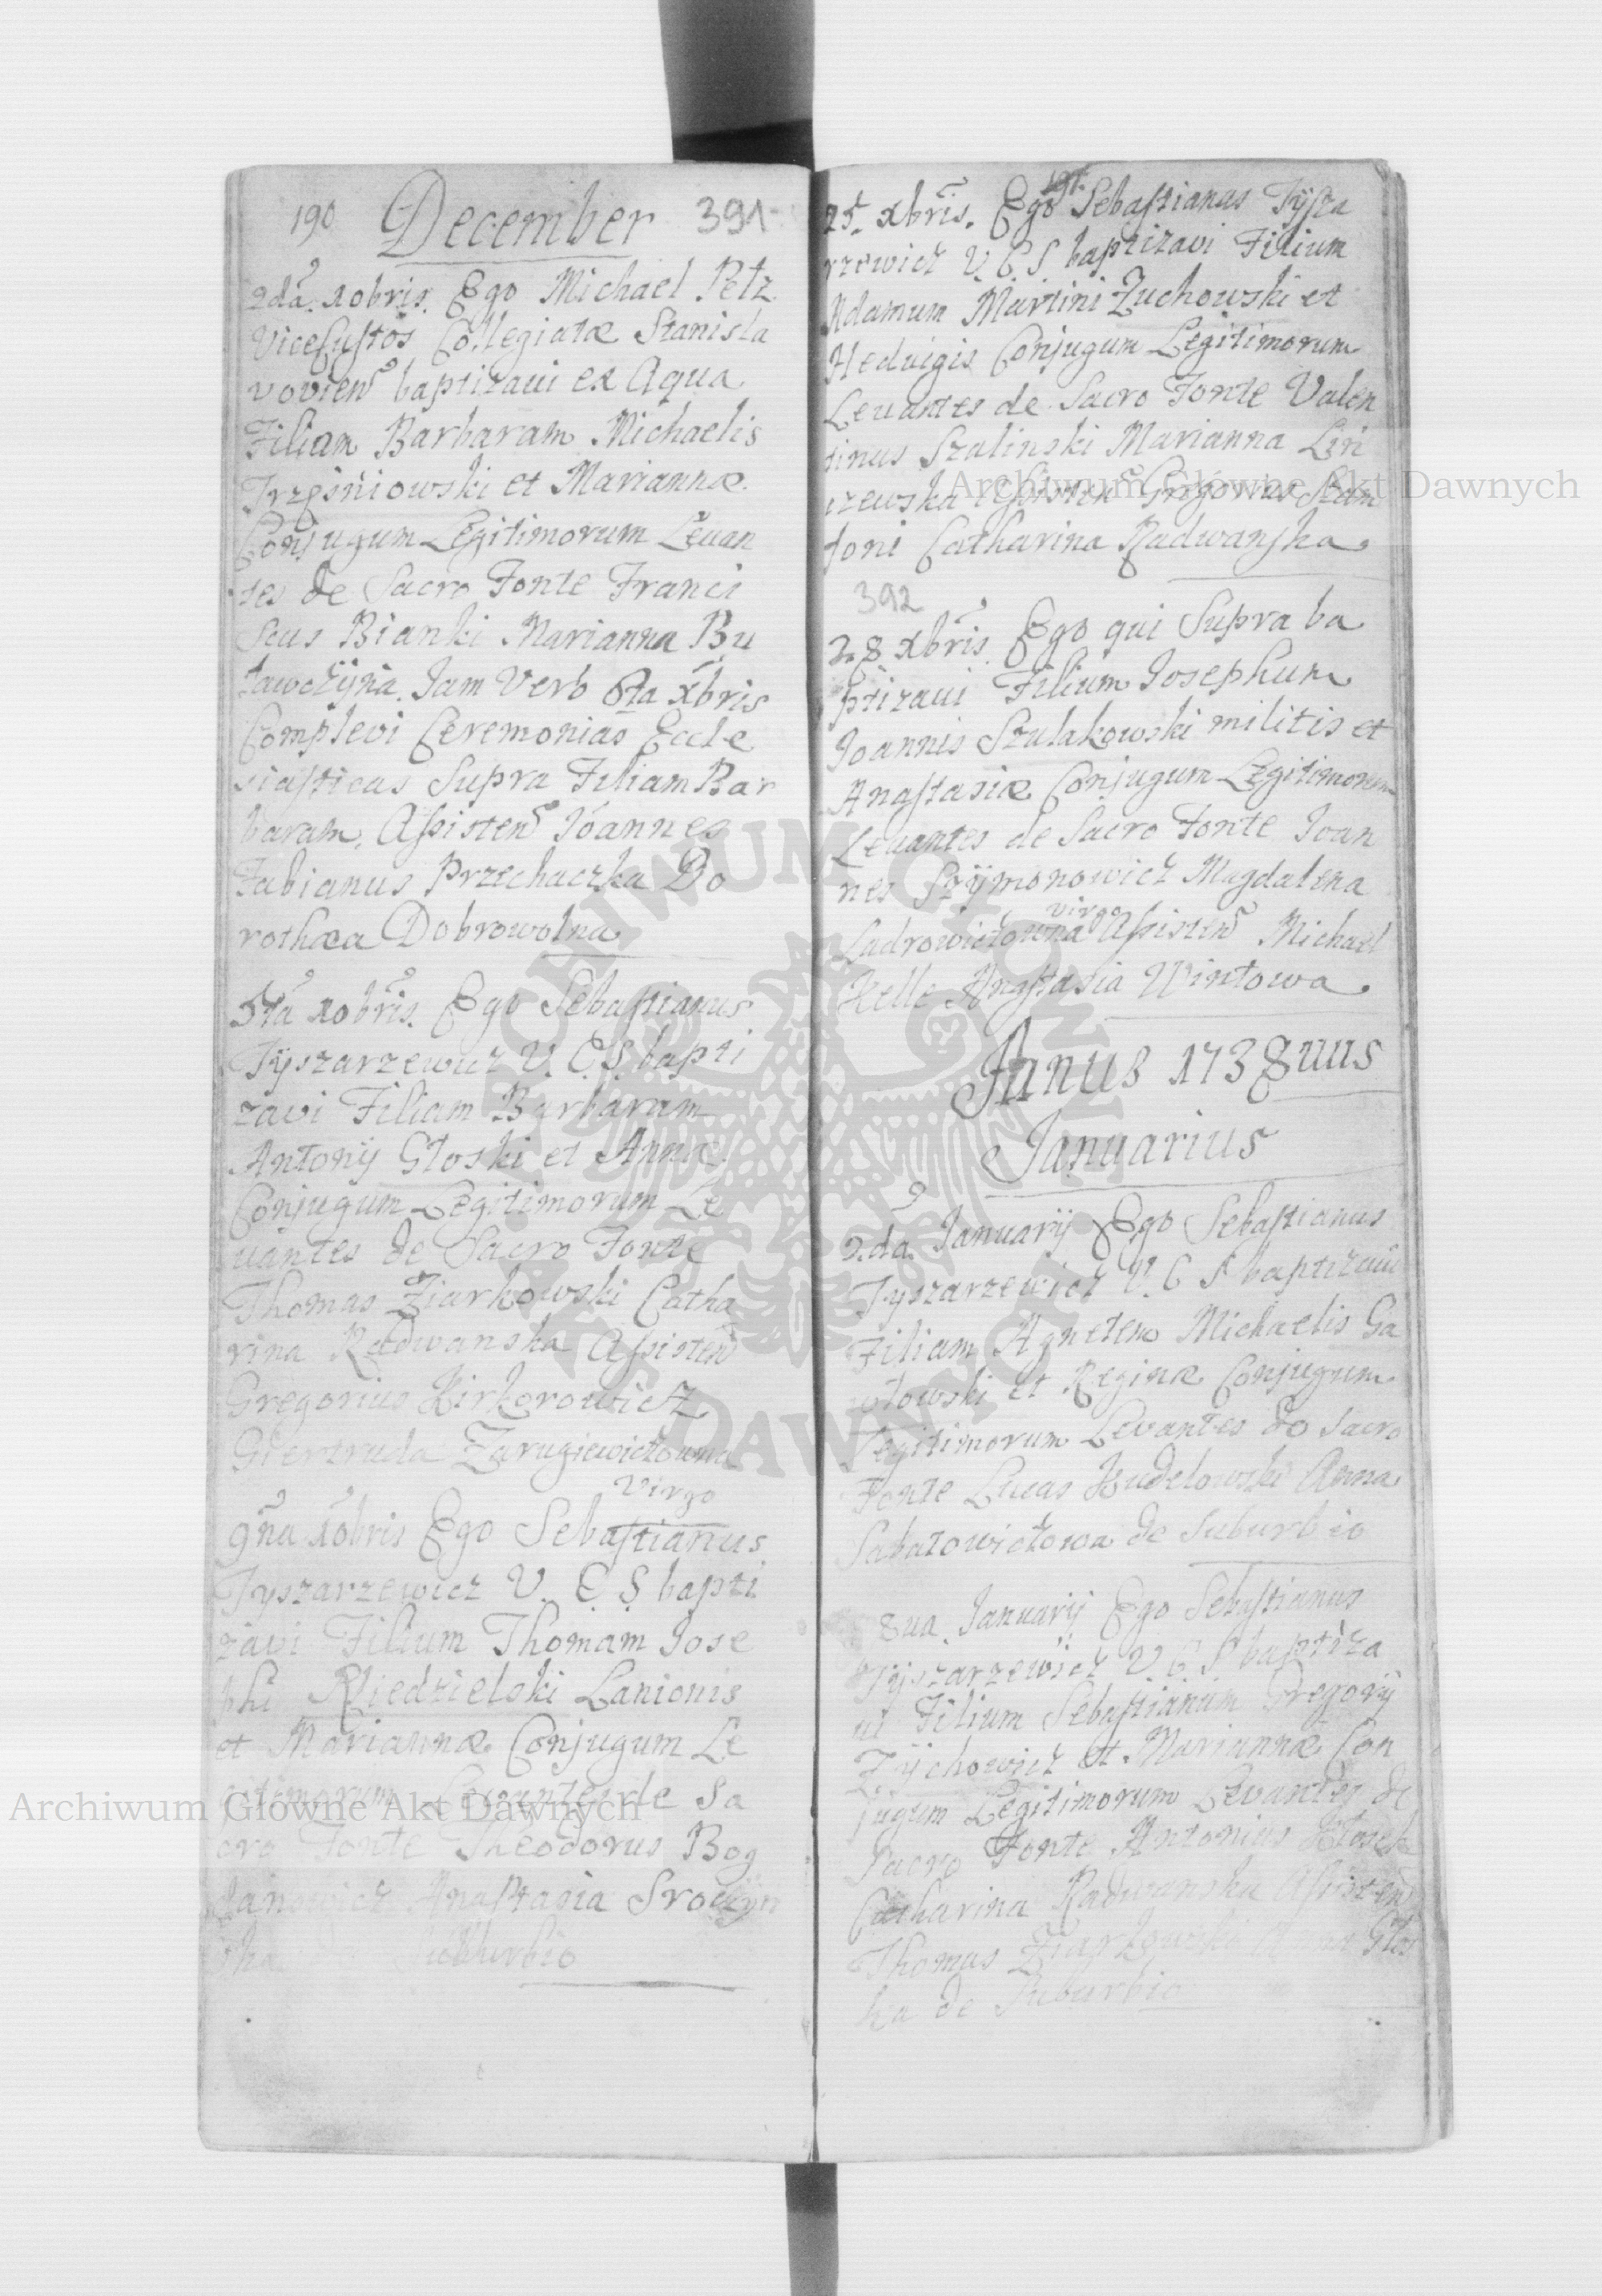 190 December 391
2da xobris. Ego Michael Petz
ViceCustos Collegiatæ Stanisla
vovien baptizaui ex Aqua
Filiam Barbaram Michaelis
et Mariannæ
Conjugum Legitimorum Leuan
tes de Sacro Fonte Franci
scus Bianki Marianna Bu
tawczÿna. Jam Vero 6ta Xbris
Complevi Ceremonias Eccle
siasticas Supra Filiam Bar
baram, Assisten Joannes
Fabianus Przechaczka Do
rothæa Dobrowolna
5ta xobris. Ego Sebastianus
Tÿszarzewicz V. C. S. bapti
zavi Filiam Barbaram
Antonÿ Głoski et Annæ
Conjugum Legitimorum Le
uantes de Sacro Fonte
Thomas Ziarkowski Catha
rina Radwanska Assisten
Gregorius Kirkorowicz
Giertruda Zarugiewiczowna
Virgo
9na xobris Ego Sebastianus
Tyszarzewicz V. C. S. bapti
zavi Filium Thomam Jose
phi Niedzielski Lanionis
et Mariannæ Conjugum Le
gitimorum Levantes de Sa
cro Fonte Theodorus Bog
danowicz Anastasia
Suburbio
191.
25. xbris. Ego Sebastianus Tÿsza
rzewicz V. C. S. baptizavi Filium
Adamum Martini Zuchowski et
Hedvigis Conjugum Legitimorum
Leuantes de Sacro Fonte Valen
tinus Szalinski Marianna Lin
czewska Assisten Gregorius
toni Catharina Radwanska
392
28 xbris. Ego qui Supra ba
ptizaui Filium Josephum
Joannis Szulakowski militis et
Anastasiæ Conjugum Legitimorum
Leuantes de Sacro Fonte Joan
nes Szÿmonowicz Magdalena
virgo
Ladrowiczowna Assisten Michael
Kelle Anastasia Wintowa
Annus 1738uus
Januarius
2.da Januarÿ Ego Sebastianus
Tyszarzewicz V. C S baptizaui
Filiam Agnetem Michaelis Ga
włowski et Reginæ Conjugum
Legitimorum Levantes de Sacro
Fonte Lucas Kudelowski Anna
Sabatowiczowa de Suburbio
8ua Januarÿ Ego Sebastianus
Tÿszarzewicz V. C. S. baptiza
ui Filium Sebastianum Gregorÿ
Zÿchowicz et Mariannæ Con
jugum Legitimorum Levantes de
Sacro Fonte Antonius
Catharina Radwanska Assisten
Thomas Ziarkowski Anna Głos
ka de Suburbio
Archiwum Głowne Akt Dawnych
Archiwum Głowne Akt Dawnych
ARCHIWUM GŁÓWNE
AKT DAWNYCH